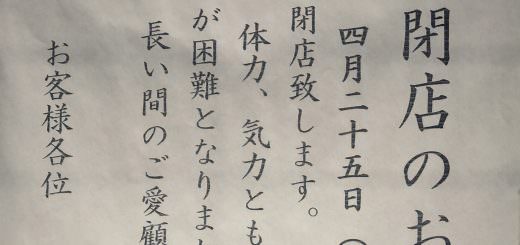 閉店のお
四月二十五日（
閉店致します。
体力、気力とも
が困難となりまし
長い間のご愛顧
お客様各位